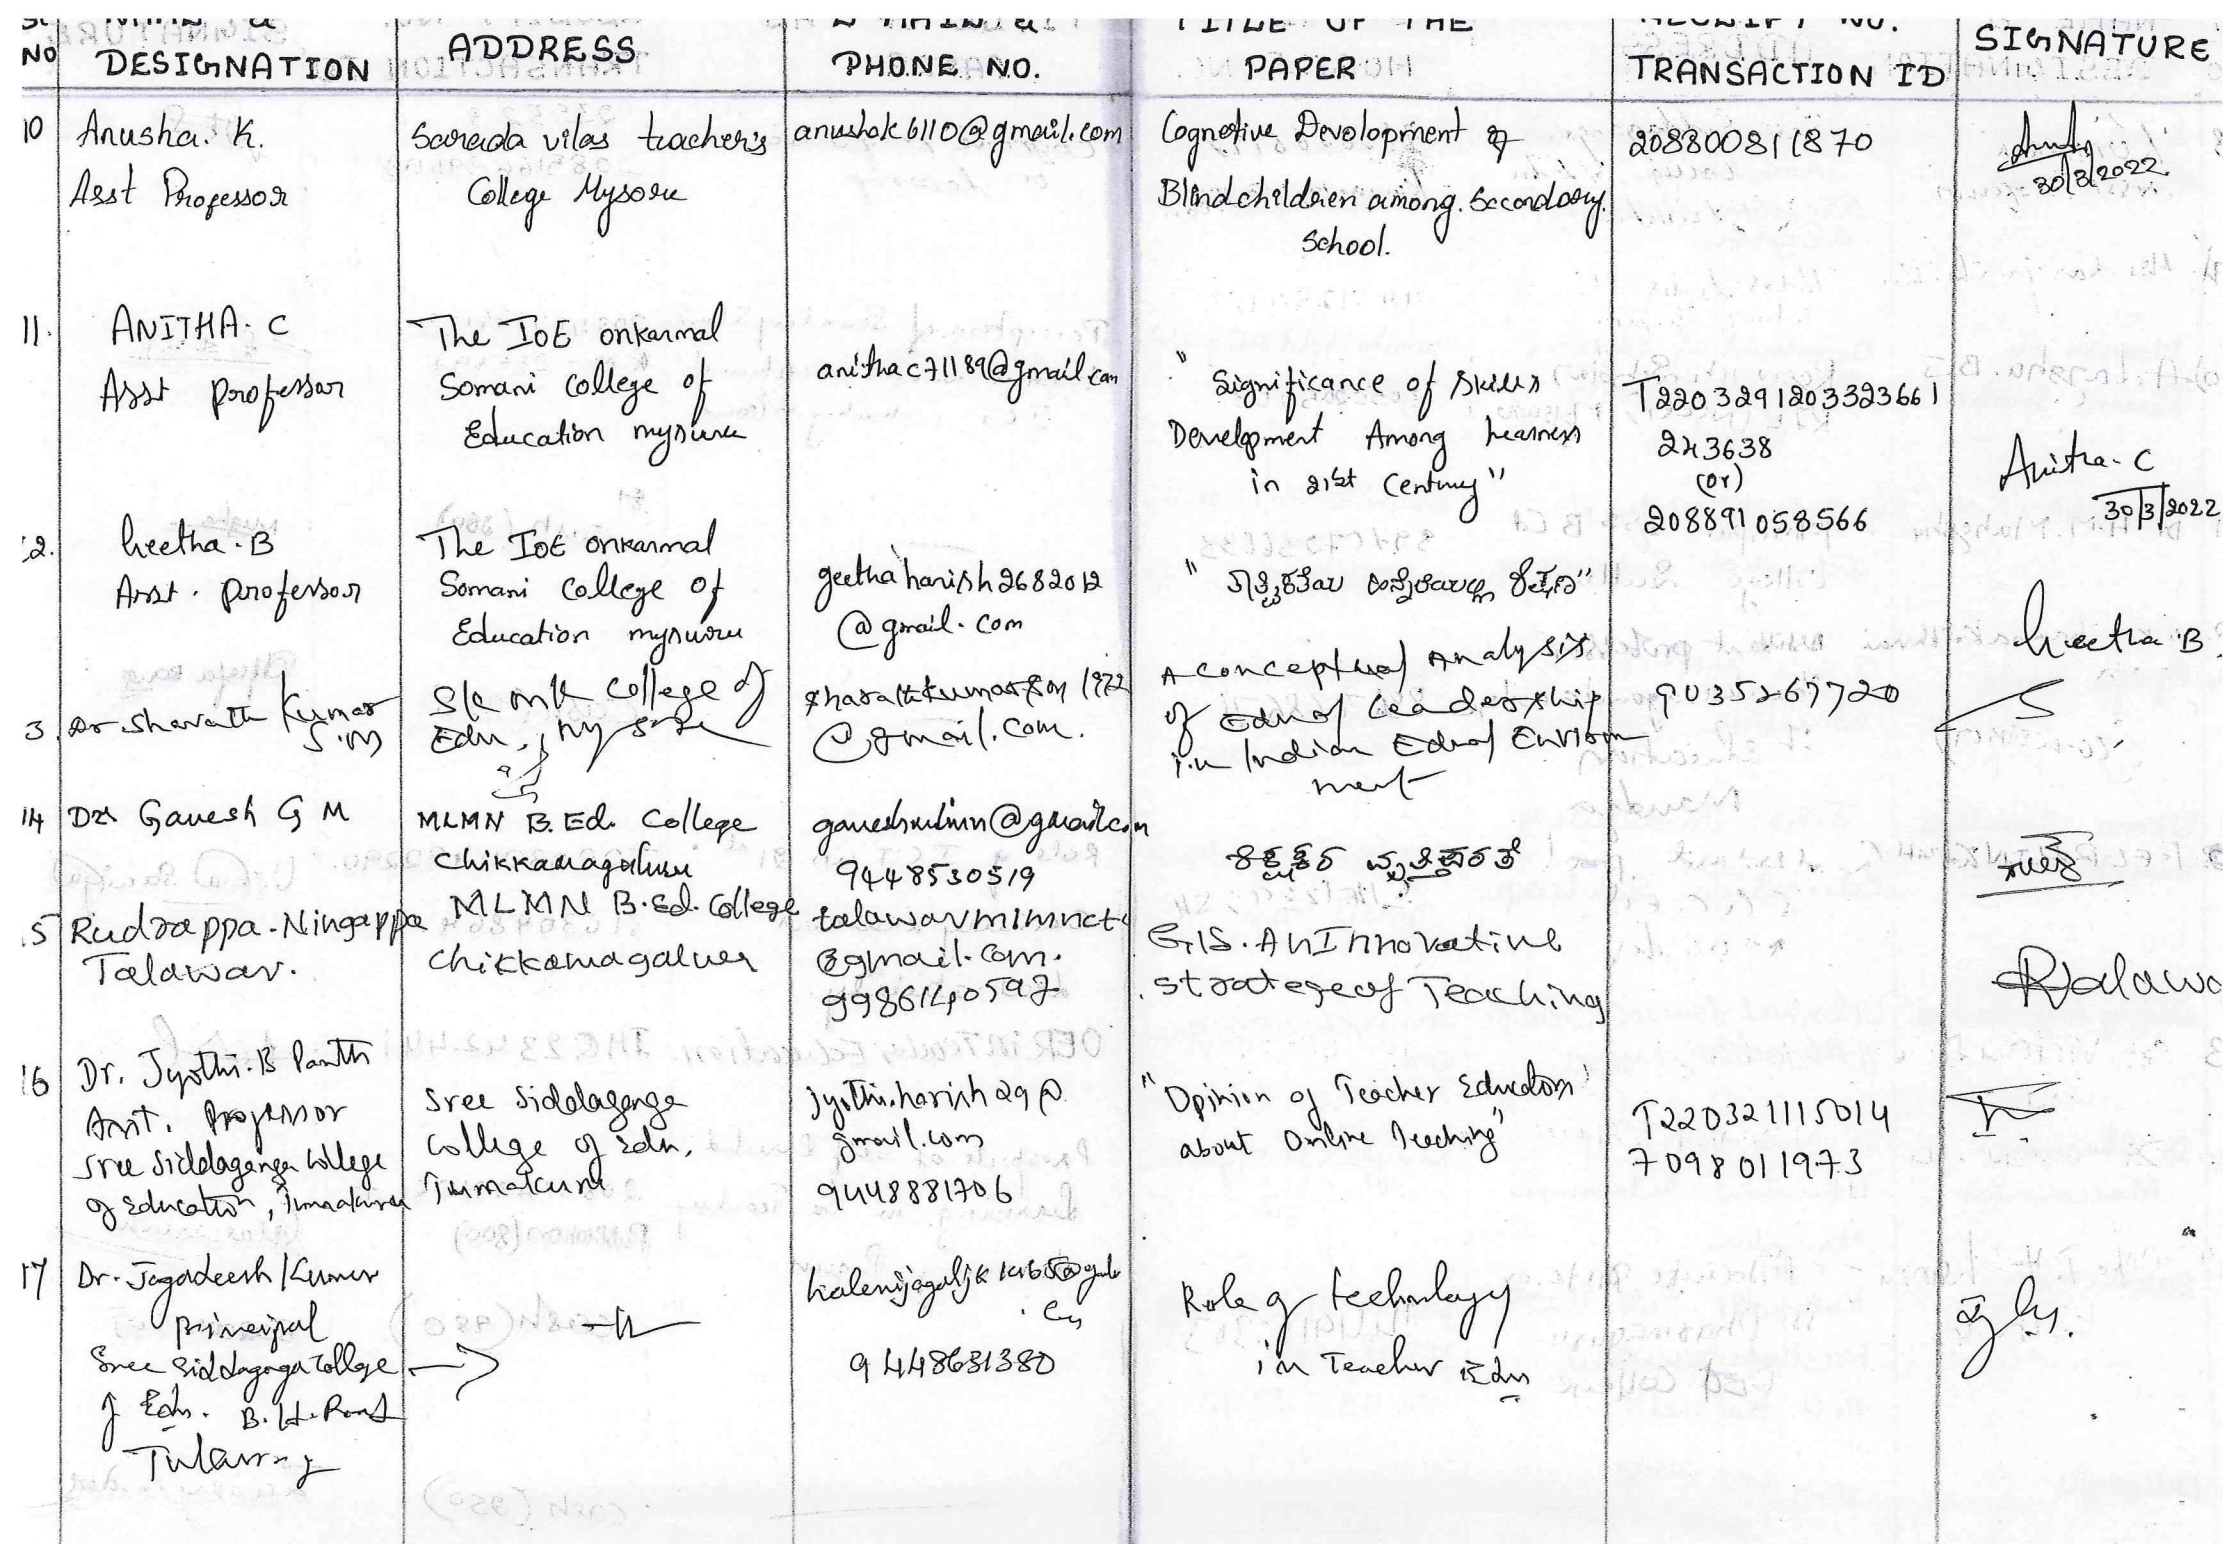 NO
DESIGNATION
ADDRESS
PHONE NO.
TITLE OF THE
PAPER
TRANSACTION ID
SIGNATURE
10
Anusha. K.
Asst Professor
Sarada vilas teacher's
College Mysore
anushak6110@gmail.com
Cognotive Devolopment of
Blind children among. Secondary.
School.
208800811870
30/3/2022
11.
ANITHA. C
Asst professor
The IoE onkarmal
Somani College of
Education mysuru
anithac71189@gmail.com
"Significance of Skills
Development Among learners
in 21st Century"
T2203291203323661
243638
(or)
208891058566
Anitha. C
30/3/2022
2.
Geetha. B
Asst. professor
The IoE onkarmal
Somani College of
Education mysuru
geethaharish2682012
@gmail.com
Geetha. B
3.
Dr. Sharath Kumar
S.M
College of
Edn,
@gmail.com.
A conceptual Analysis
of Ednal Leadership
in Indian Ednal Environ
ment
9035267720
14
Dr Ganesh G M
MLMN B.Ed. College
Chikkamagaluru
9448530519
ಶಿಕ್ಷಕರ
5
Rudrappa. Ningappa
Talawar.
MLMN B.Ed. College
Chikkamagaluru
talawarmlmnct
@gmail.com.
9986140597
GIS. An Innovative
stratege of Teaching
16
Dr. Jyothi. B Panth
Asst. Professor
Sree Siddaganga College
of Education, Tumakuru
Sree Siddaganga
College of Edn,
Tumakuru
jyothi.harish29@
gmail.com
9448881706
"Opinion of Teacher Educators
about Online Teaching"
T220321115014
7098011973
17
Dr. Jagadeesh Kumar
principal
Sree Siddaganga College
of Edn. B.H. Road
9448631380
Role of technology
in Teacher Edn